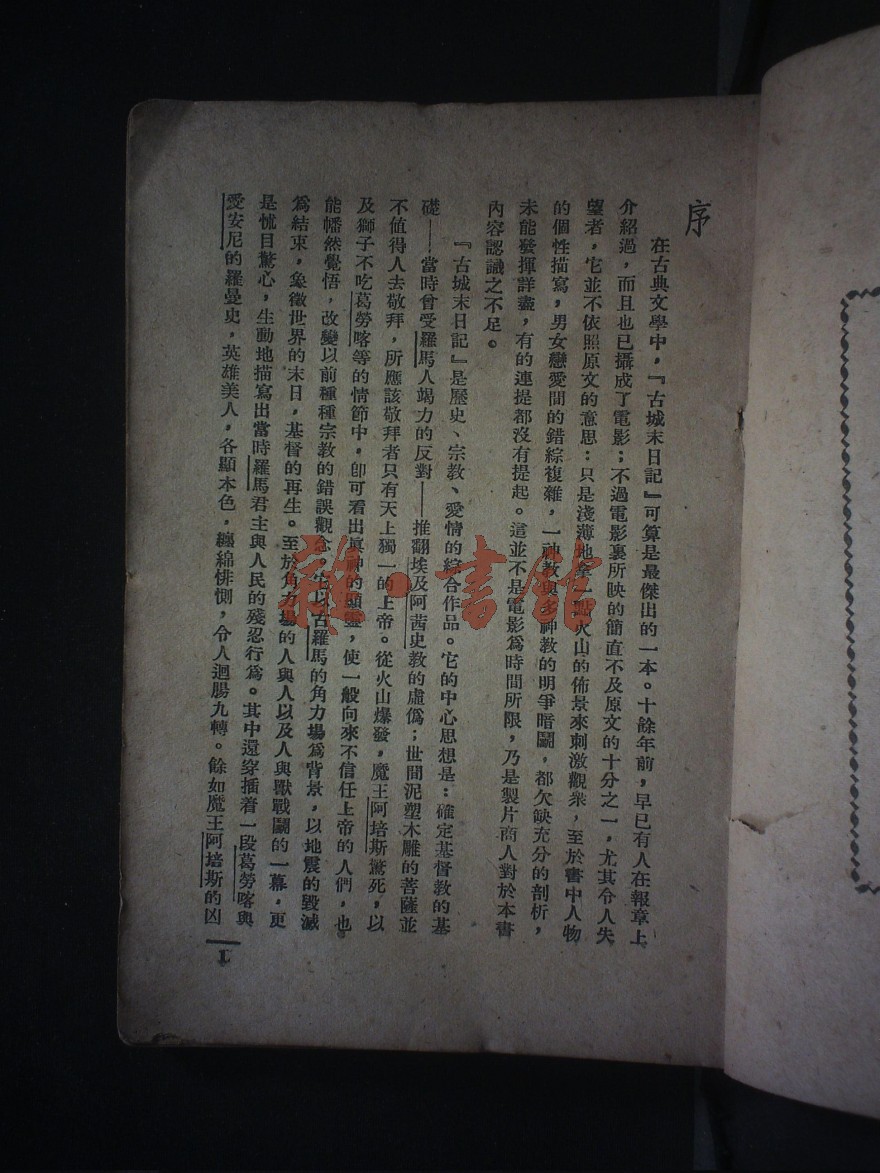 序
在古典文學中，『古城末日記』可算是最傑出的一本。十餘年前，早已有人在報章上
介紹過，而且也已攝成了電影；不過電影裏所映的簡直不及原文的十分之一，尤其令人失
望者，它並不依照原文的意思：只是淺薄地拿一點火山的佈景來刺激觀衆，至於書中人物
的個性描寫，男女戀愛間的錯綜複雜，一神教與多神教的明爭暗鬬，都欠缺充分的剖析，
未能發揮詳盡，有的連提都沒有提起。這並不是電影爲時間所限，乃是製片商人對於本書
內容認識之不足。
『古城末日記』是歷史、宗教、愛情的綜合作品。它的中心思想是：確定基督教的基
礎——當時曾受羅馬人竭力的反對——推翻埃及阿茜史教的虛僞；世間泥塑木雕的菩薩並
不値得人去敬拜，所應該敬拜者只有天上獨一的上帝。從火山爆發，魔王阿培斯驚死，以
及獅子不吃葛勞喀等的情節中，卽可看出眞神的顯靈，使一般向來不信任上帝的人們，也
能幡然覺悟，改變以前種種宗教的錯誤觀念。它以古羅馬的角力場爲背景，以地震的毀滅
爲結束，象徵世界的末日，基督的再生。至於角力場的人與人以及人與獸戰鬬的一幕，更
是怵目驚心，生動地描寫出當時羅馬君主與人民的殘忍行爲。其中還穿插着一段葛勞喀與
愛安尼的羅曼史，英雄美人，各顯本色，纏綿悱惻，令人迴腸九轉。餘如魔王阿培斯的凶
1
雜·書館